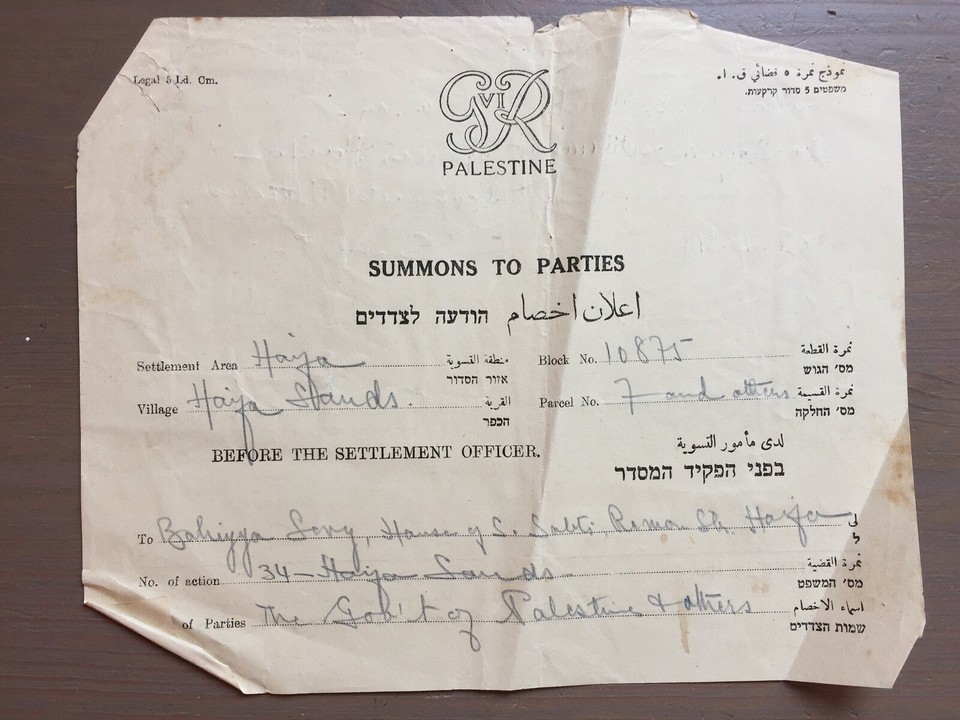 Legal 5 Ld. Cm.
نموذج نمرة ٥ قضائي ق. ا.
משפטים 5 סדור קרקעות.
G VI R
PALESTINE
SUMMONS TO PARTIES
اعلان اخصام הודעה לצדדים
Settlement Area Haifa منطقة التسوية
אזור הסדור
Block No. 10875 نمرة القطعة
מס׳ הגוש
Village Haifa Sands. القرية
הכפר
Parcel No. 7 and others نمرة القسيمة
מס׳ החלקה
BEFORE THE SETTLEMENT OFFICER.
لدى مأمور التسوية
בפני הפקיד המסדר
To Bahiyya Levy, House of S. Sabti, Roman Ch. Haifa
ל
No. of action 34 - Haifa Sands نمرة القضية
מס׳ המשפט
of Parties The Gov't of Palestine & others اسماء الاخصام
שמות הצדדים